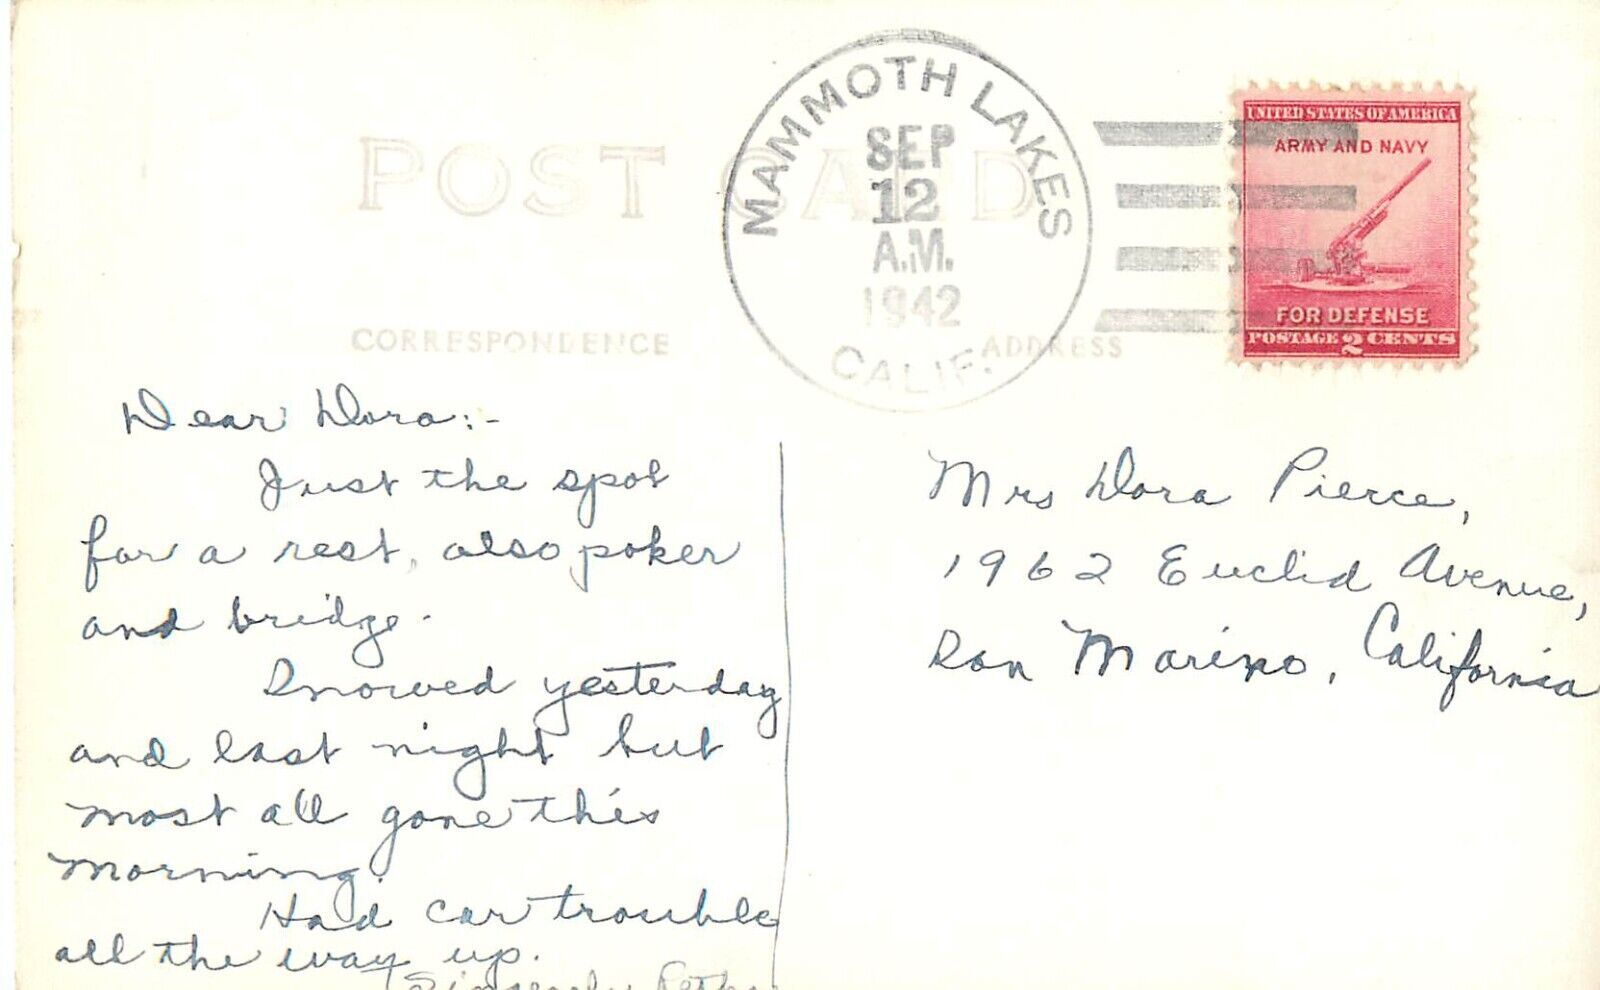 POST CARD
MAMMOTH LAKES
SEP
12
A.M.
1942
CALIF.
UNITED STATES OF AMERICA
ARMY AND NAVY
FOR DEFENSE
POSTAGE 2 CENTS
CORRESPONDENCE
ADDRESS
Dear Dora:-
Just the spot
for a rest, also poker
and bridge.
Snowed yesterday
and last night but
most all gone this
morning.
Had car trouble
all the way up.
Sincerely
Mrs Dora Pierce,
1962 Euclid Avenue,
San Marino, California